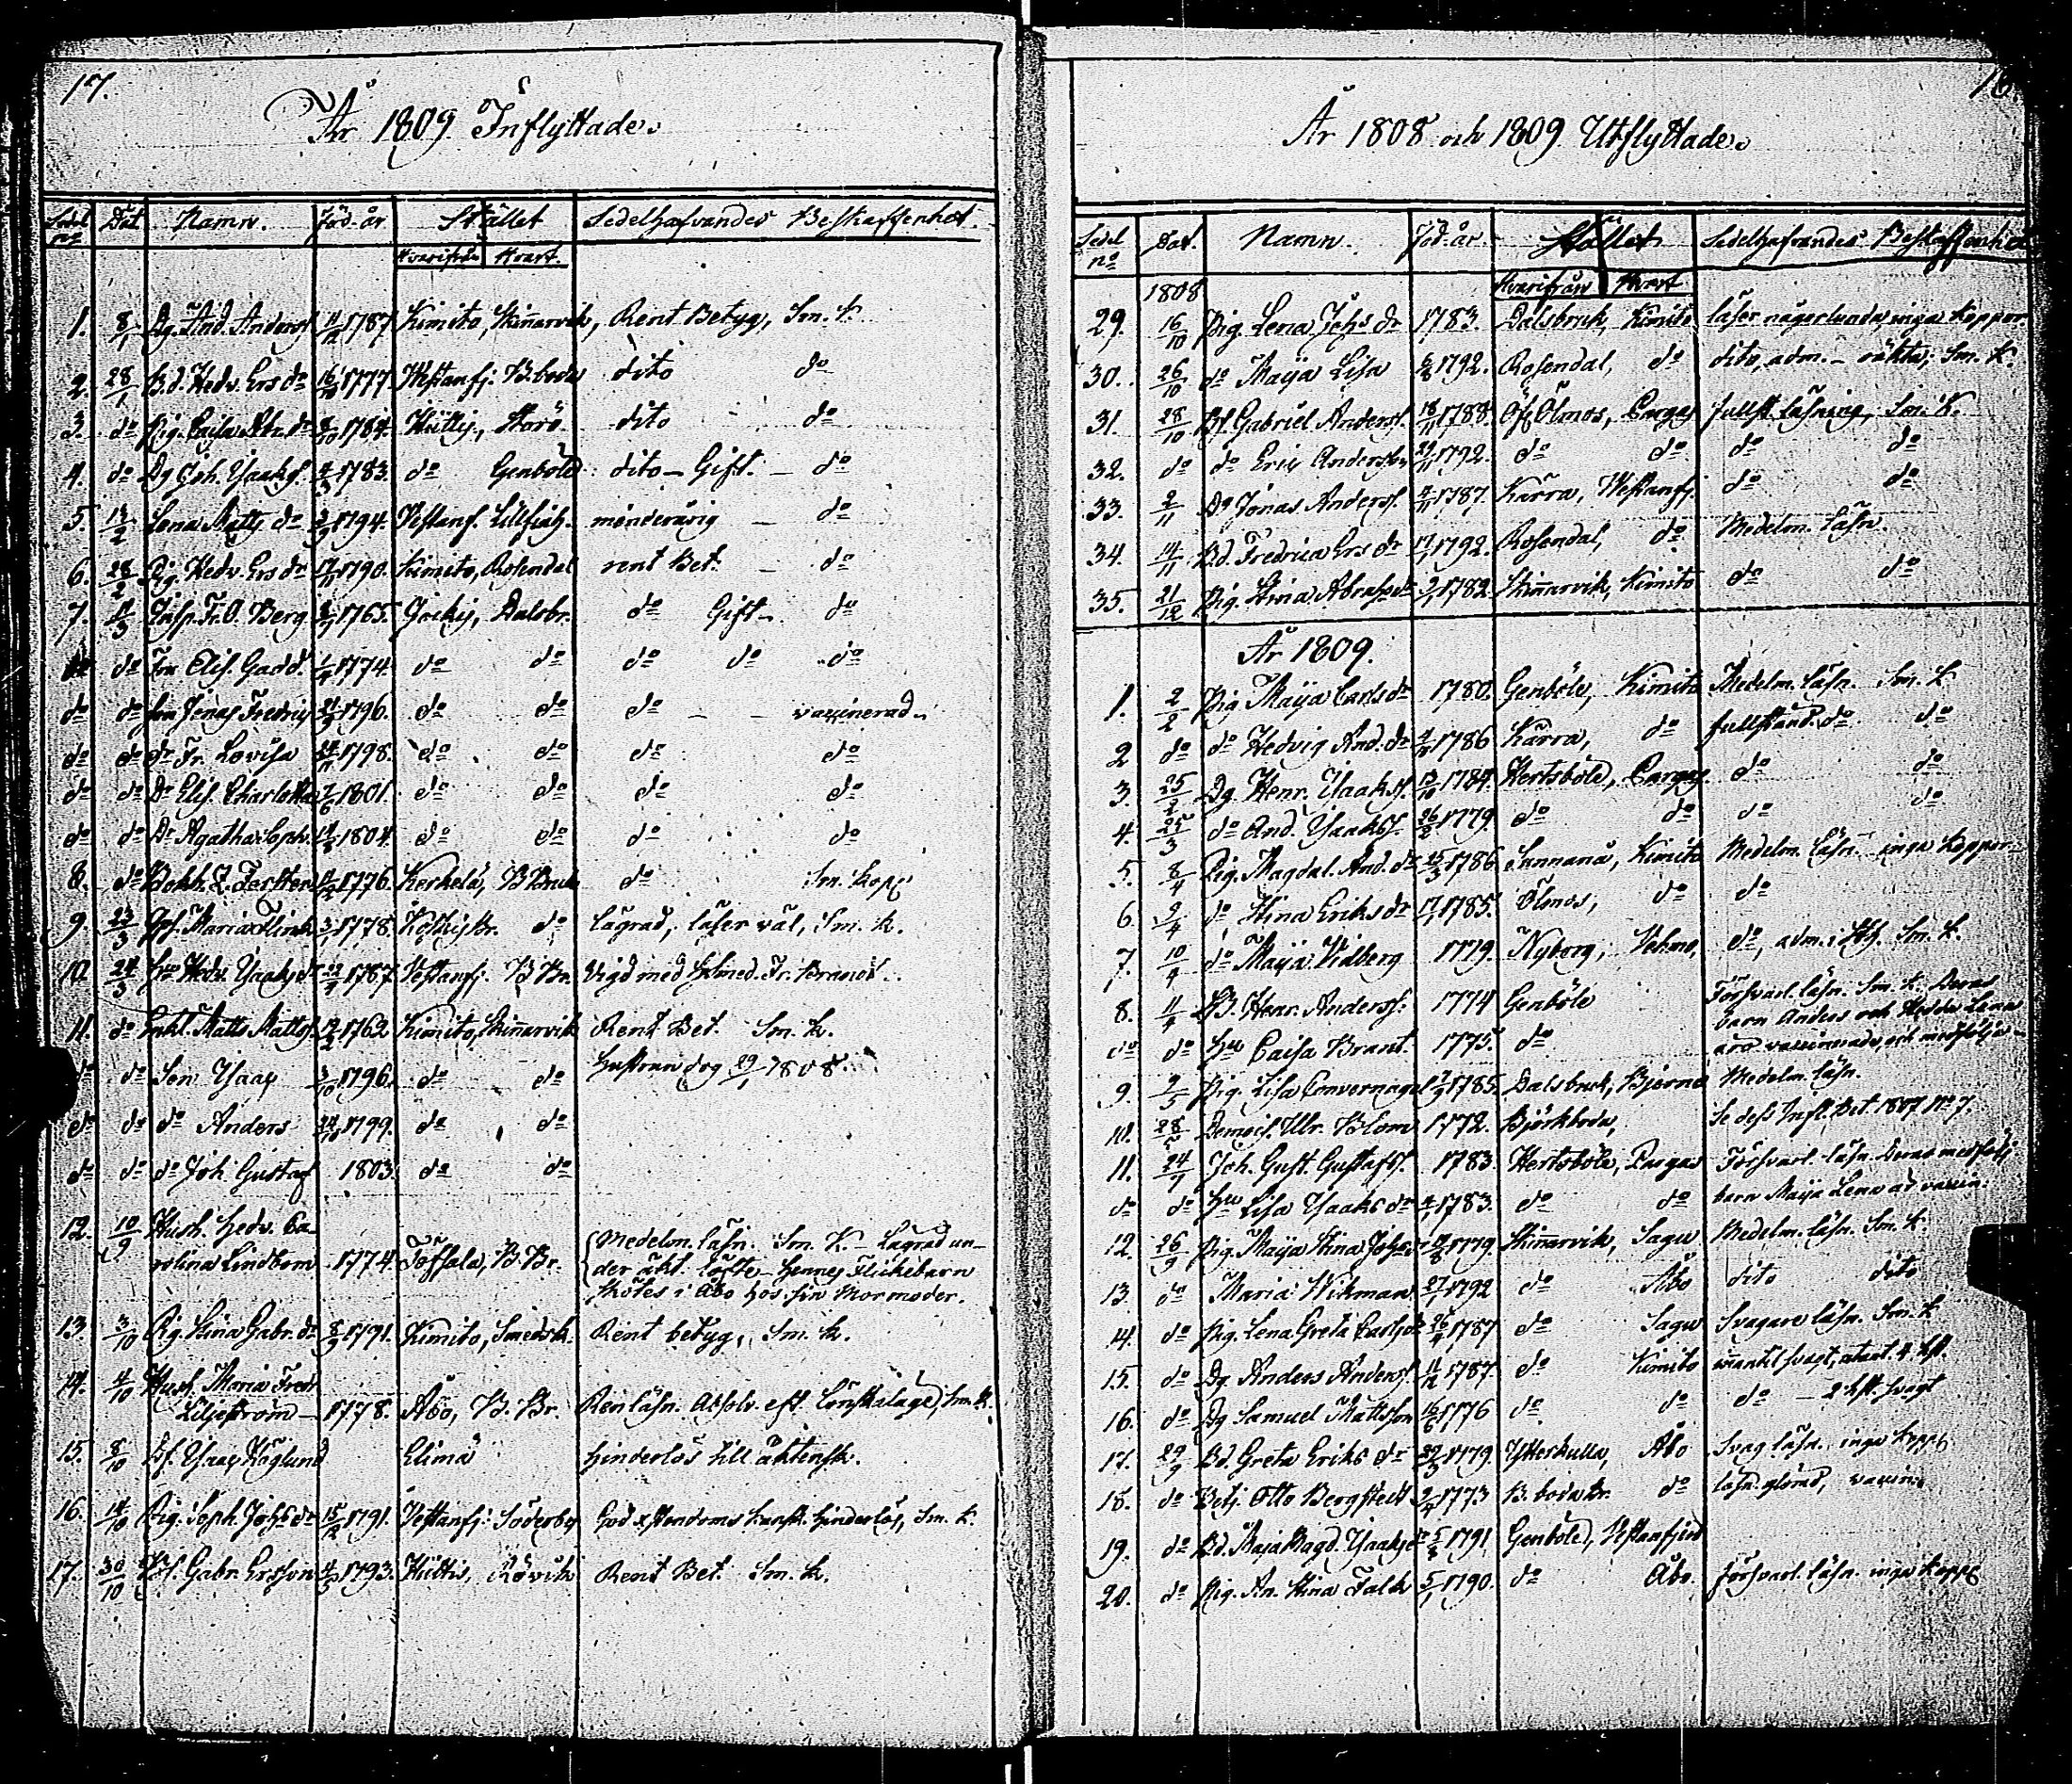 17.
År 1809 Inflyttade.
Sedel no Dat Namn. Föd. år Stället Sedelhafvandes Beskaffenhet.
Hvarifrån Hvart.
1. 8/1 Dg. And. Anderss. 11/12 1787. Kimito, Skinnarvik, Rent Betyg, Sm. K.
2. 28/1 B.d. Hedv. Ers dr 1777. Westanfj. B.boda dito do
3. do Pig. Caisa Abr. dr 8/10 1784. Hiittis, Storö. dito do
4. do Dg Joh. Isaaks. 1783. do Genböle dito – Gift. – do
5. 13/2 Lena Matts dr 1794. Vestanf. Lillfinh. minderårig – do
6. 28/2 Pig. Hedv. Ers dr 17/11 1790. Kimito, Rosendal rent Bet. – do
7. 4/3 Insp. Fr. O. Berg 1765. Jockis, Dalsbr. do Gift – do
do Fru Elis. Gadd. 1774. do do do do do
do do Son Jonas Fredric 1796. do do do – – vaccinerad.
do do Dr Fr. Lovisa 1798. do do do do
do do Dr Elis. Charlotta 7/6 1801. do do do do
do do Dr Agatha Soph. 1804. do do do do
8. do Bokh. Z. Forsten 1776. Kerkelä, B Bruk do Sm. Kopp
9. 23/3 Maria Flink 3/1 1778. Koskis Br. do lagrad, läser väl, Sm. K.
10. 24/3 Hu Hedv. Isaaks dr 1787. Vestanfj. B Br. Vigd med Fr. Brander.
11. do Enkl. Matts Mattss. 1762. Kimito, Skinnarvik Rent Bet. Sm. K.
do do Son Isaac 3/10 1796. do do Hustrun dog 29/1 1808.
do do do Anders 1799. do do
do do do Joh. Gustaf 1803. do do
12. 10/9 Hush. Hedv. Ca-
rolina Lindbom 1774. Töfsala, B. Br. Medelm. läsn. Sm. K. – Lagrad un-
der äkt. löfte – hennes Flickebarn
skötes i Åbo hos sin Mormoder.
13. 3/10 Pig. Stina Gabr. dr 8/3 1791. Kimito, Smedsk. Rent betyg, Sm. K.
14. 4/10 Hush. Maria Fredr
Liljeström – 1778. Åbo, B. Br. Ren läsn. absolv. eft. Lönskaläge, Sm. K.
15. 8/10 Bf. Isaac Höglund Elimä hinderlös till äktensk.
16. 14/10 Pig. Soph. Johs dr 15/12 1791. Vestanfj. Söderby God xstendoms kunsk. hinderlös, Sm. K.
17. 30/10 Bf. Gabr. Ersson 1793. Hiittis, Rövik Rent Bet. Sm. K.
År 1808 och 1809 Utflyttade.
Sedel no Dat. Namn. Föd. år. Stället Sedelhafvandes Beskaffenhet
1808 Hvarifrån Hvart
29. 16/10 Pig. Lena Johs dr 1783. Dalsbruk, Kimito läser någerlunda, inga koppor.
30. 26/10 do Maija Lisa 1792. Rosendal, do dito, adm. – oäkta, Sm. K.
31. 28/10 Bf. Gabriel Anderss. 18/11 1788. Öf. Ölmos, Pargas fullst. läsning, Sm. K.
32. do do Eric Andersson 1792. do do do do
33. 2/11 Dg Jonas Anderss. 1787. Kärra, Westanfj. do do
34. 14/11 B.d. Fredrica Ers dr 1792. Rosendal, do Medelm. läsn.
35. 21/12 Pig. Stina Abrahs dr 1782. Skinnarvik, Kimito do do
År 1809.
1. 2/2 Pig Maija Carls dr 1780. Genböle, Kimito Medelm. läsn. Sm. K
2 do do Hedvig And. dr 1786 Kärra, do fullständ. do do
3. 25/2 Dg. Henr. Isaakss. 13/10 1784. Hertsböle, Pargas do do
4. 25/3 do And. Isaakss. 26/2 1779. do do do do
5. 8/4 Pig. Magdal. And. dr 25/3 1786. Sunnanå, Kimito Medelm. läsn. – inga koppor
6 9/4 do Stina Eriks dr 1785. Ölmos, do do
7. 10/4 do Maija Vidberg 1779. Nyborg, Vehmo, do, adm. Sm. K.
8. 11/4 Henr. Anderss. 1774 Genböle Försvarl. läsn. Sm. K. Deras
do do Hu Caisa Brant. 1775. do barn Anders och Hedda Lena
äro vaccinerade, och medfölja
9. 9/5 Pig. Lisa Convernagel 1785. Dalsbruk, Bjerno Medelm. läsn.
10. 28/5 Demois. Ulr. Blom 1772. Björkboda, Se dess Infl. Bet. 1807 No 7.
11. 24/7 Joh. Gust. Gustafss. 1783. Hertsböle, Pargas Försvarl. läsn. Deras medfölj.
do do Hu Lisa Isaaks dr 1783. do do barn Maija Lena är vaccin.
12. 26/9 Pig. Maija Stina Johs dr 1779. Skinnarvik, Sagu Medelm. läsn. Sm. K
13. do Maria Wikman 27/1 1792 do Åbo dito dito
14. do Pig. Lena Greta Carls dr 1787 do Sagu Svagare läsn. Sm. K
15. do Dg. Anders Anderss. 11/12 1787. do Kimito innantil svagt, utant. 4. hst.
16. do Dg Samuel Mattsson 1776 do do do – 2 hst. svagt
17. 29/9 B.d. Greta Eriks dr 1779. Ytterkulla, Åbo Svag läsn. inga kopp
18. do Betj. Otto Bergstedt 1773 B. boda Br. do läsn. glömd, vaccin.
19. do B.d. Maja Magd. Isaaks dr 1791 Genböle, Vestanfjerd
20. do Pig. An. Stina Falk 5/1 1790. do Åbo. försvarl. läsn. inga kopp